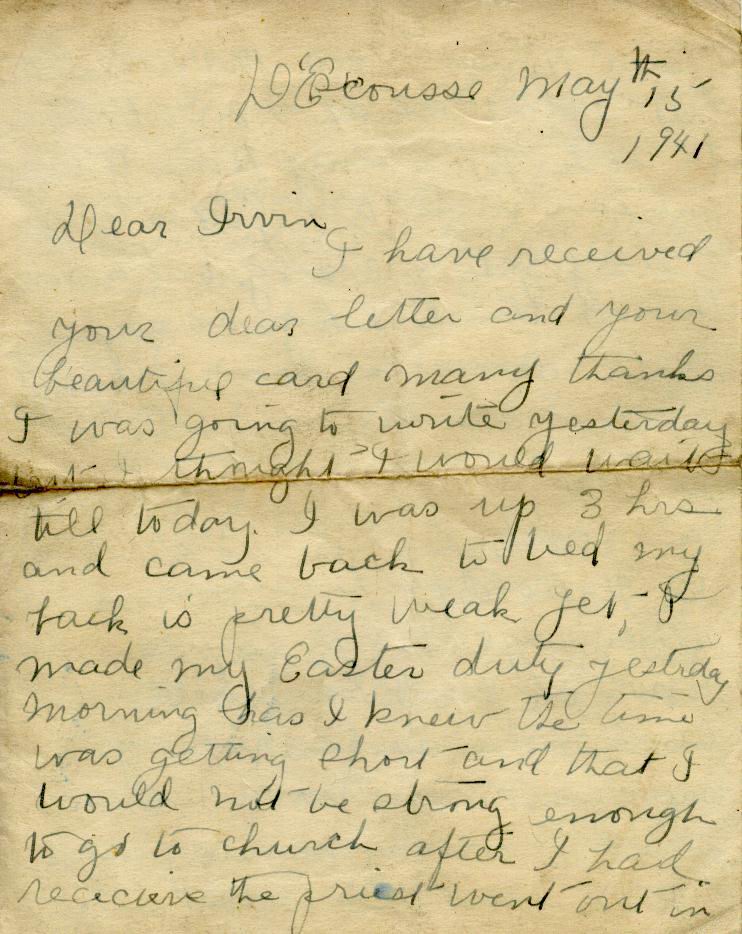 D'Escousse May 15th
1941
Dear Irvin
I have received
your dear letter and your
beautiful card many thanks
I was going to write yesterday
but I thought I would wait
till today. I was up 3 hrs
and came back to bed my
back is pretty weak yet, I
made my Easter duty yestrday
morning has I knew the time
was getting short and that I
would not be strong enough
to go to church after I had
receieve the priest went out in